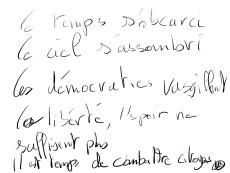 le temps s'obcurci
le ciel s'assombri
les démocraties vassillent
la liberté, l'espoir ne
suffisent plus
il est temps de combattre citoyens